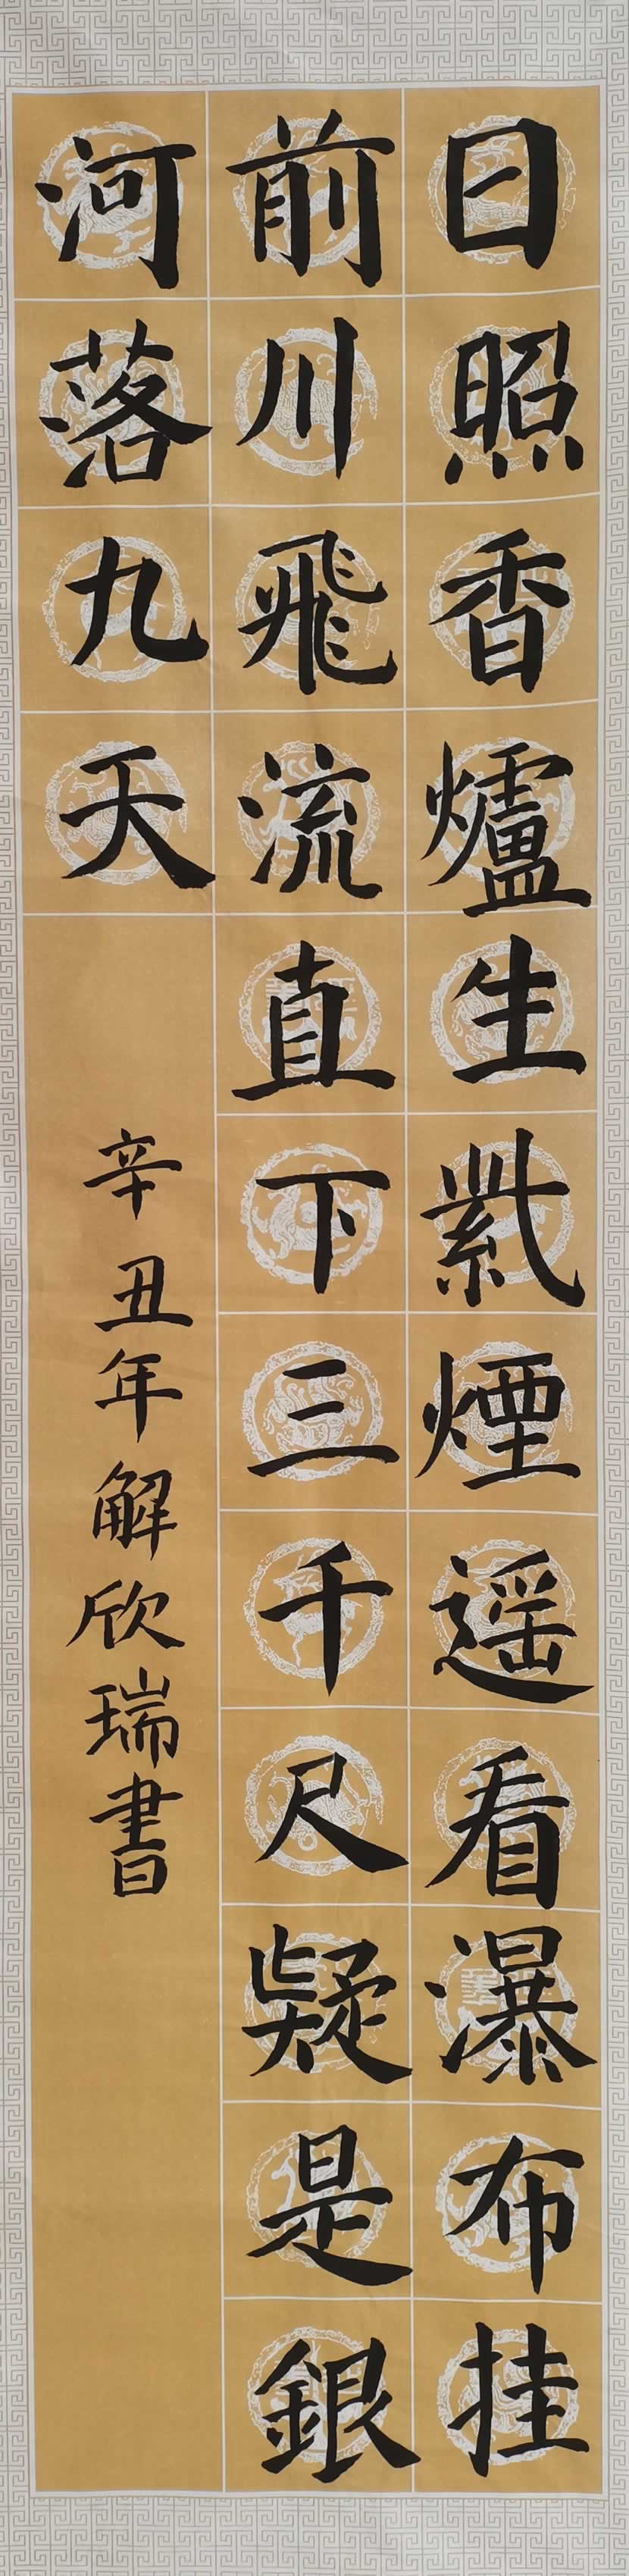 日照香爐生紫煙遥看瀑布挂
前川飛流直下三千尺疑是銀
河落九天
辛丑年解欣瑞書